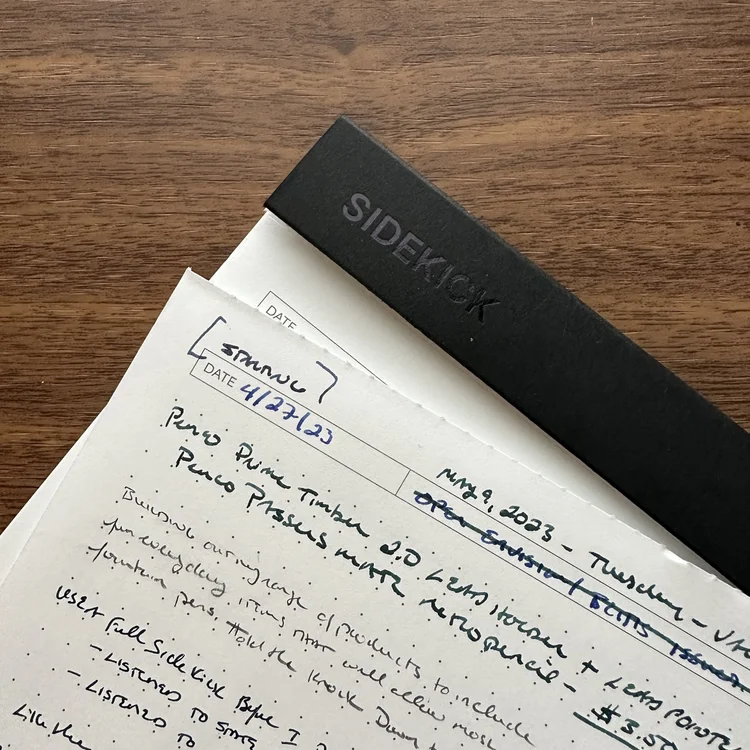 SIDEKICK
DATE
[STARTING]
DATE 4/27/23
MAY 9, 2023 - TUESDAY -
Penco Prime Timber 2.0 LEAD HOLDER + LEAD POINTER
Penco PASSERS MATE RETROPENCIL - $3.50
Building out my range of products to include
everyday items that will allow most
fountain pens. Hold the Knock Down
USE A Full SideKick Before I
- LISTENED TO STATE
- LISTENED TO
Like the